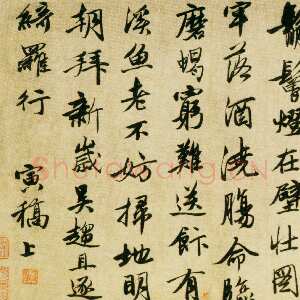 鬅鬙燈在壁壯圖
牢落酒澆腸命臨
磨蝎窮難送飰有
溪魚老不妨掃地明
朝拜新歲吳趨且逐
綺羅行 寅稿上